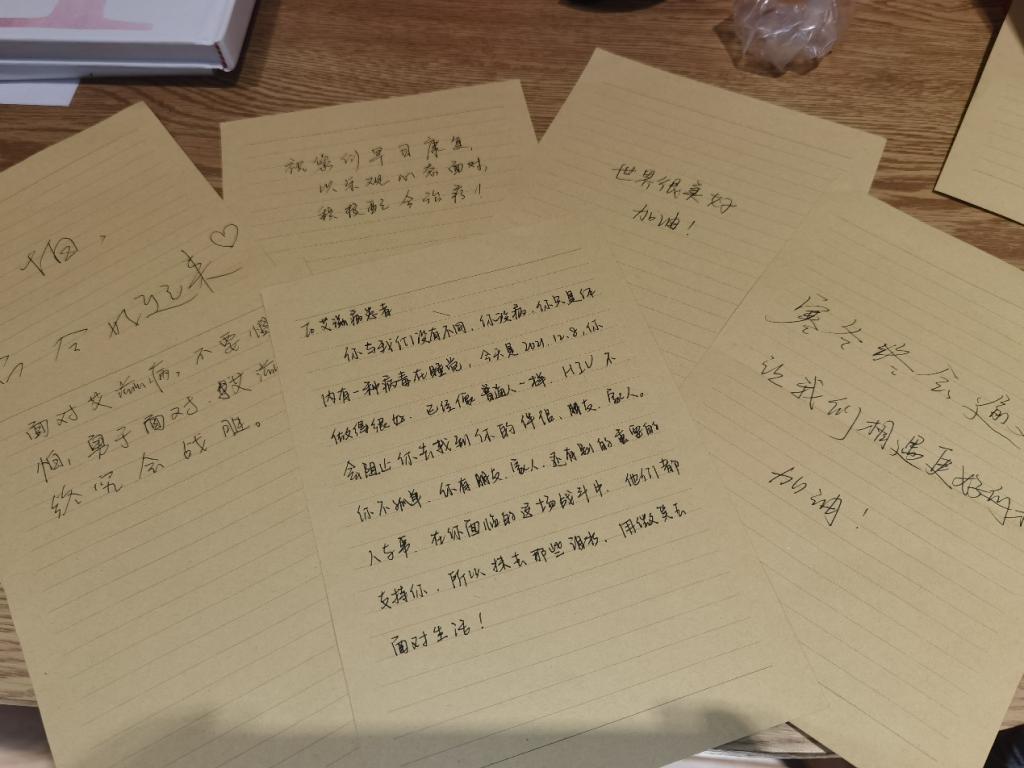 怕，
会好起来
面对艾滋病，不要惧
怕，勇于面对，艾滋
终究会战胜。
祝您们早日康复，
以乐观心态面对，
积极配合治疗！！
世界很美好
加油！
To 艾滋病患者
你与我们没有不同，你没病，你只是体
内有一种病毒在睡觉，今天是2021.12.8，你
做得很好，已经像普通人一样，HIV不
会阻止你去找到你的伴侣、朋友、家人。
你不孤单，你有朋友、家人、还有别的重要的
人与事，在你面临的这场战斗中，他们都
支持你，所以抹去那些泪水，用微笑去
面对生活！
寒冬终会过
让我们相遇更好的
加油！